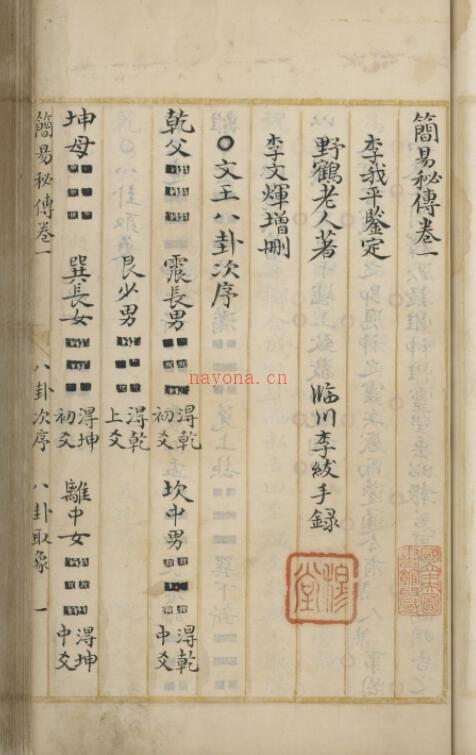 簡易秘傳卷一
李我平鑒定
野鶴老人著 臨川李紱手録
李文輝增刪
○文王八卦次序
乾父 震長男 淂乾初爻 坎中男 淂乾中爻
艮少男 淂乾上爻
坤母 巽長女 淂坤初爻 離中女 淂坤中爻
簡易秘傳卷一 八卦次序 八卦取象 一
穆堂
nayona.cn